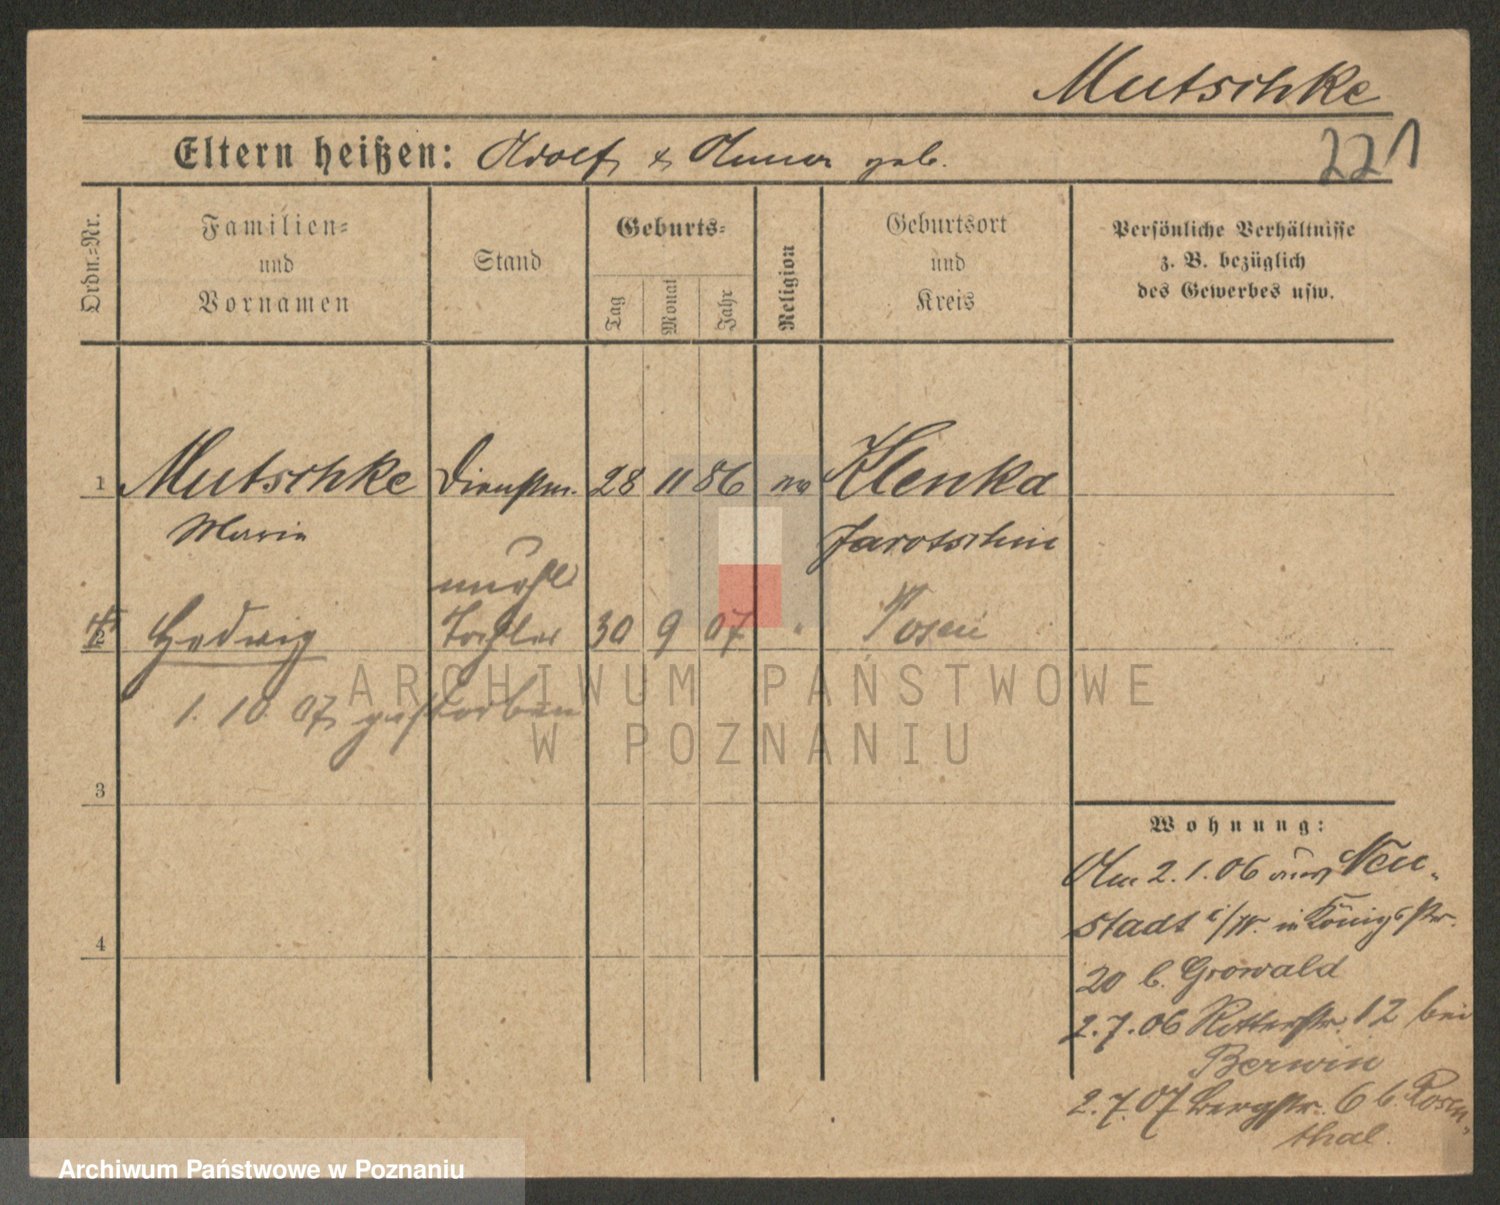 Mutschke
Eltern heißen: Adolf & Anna geb.
221
Ordn.-Nr.
Familien-
und
Vornamen
Stand
Geburts-
Tag
Monat
Jahr
Religion
Geburtsort
und
Kreis
Persönliche Verhältnisse
z. B. bezüglich
des Gewerbes usw.
1 Mutschke Dienstm. 28 11 86 ev Klenka
Marie Jarotschin
unehl
2 Hedwig Tochter 30 9 07 " Posen
1. 10. 07 gestorben
3
4
Wohnung:
Am 2.1.06 aus Neu-
stadt i/W. in Königstr.
20 b. Growald
2.7.06 Ritterstr. 12 bei
Berwin
2.7.07 Bergstr. 6 b. Rosen-
thal.
ARCHIWUM PAŃSTWOWE
W POZNANIU
Archiwum Państwowe w Poznaniu